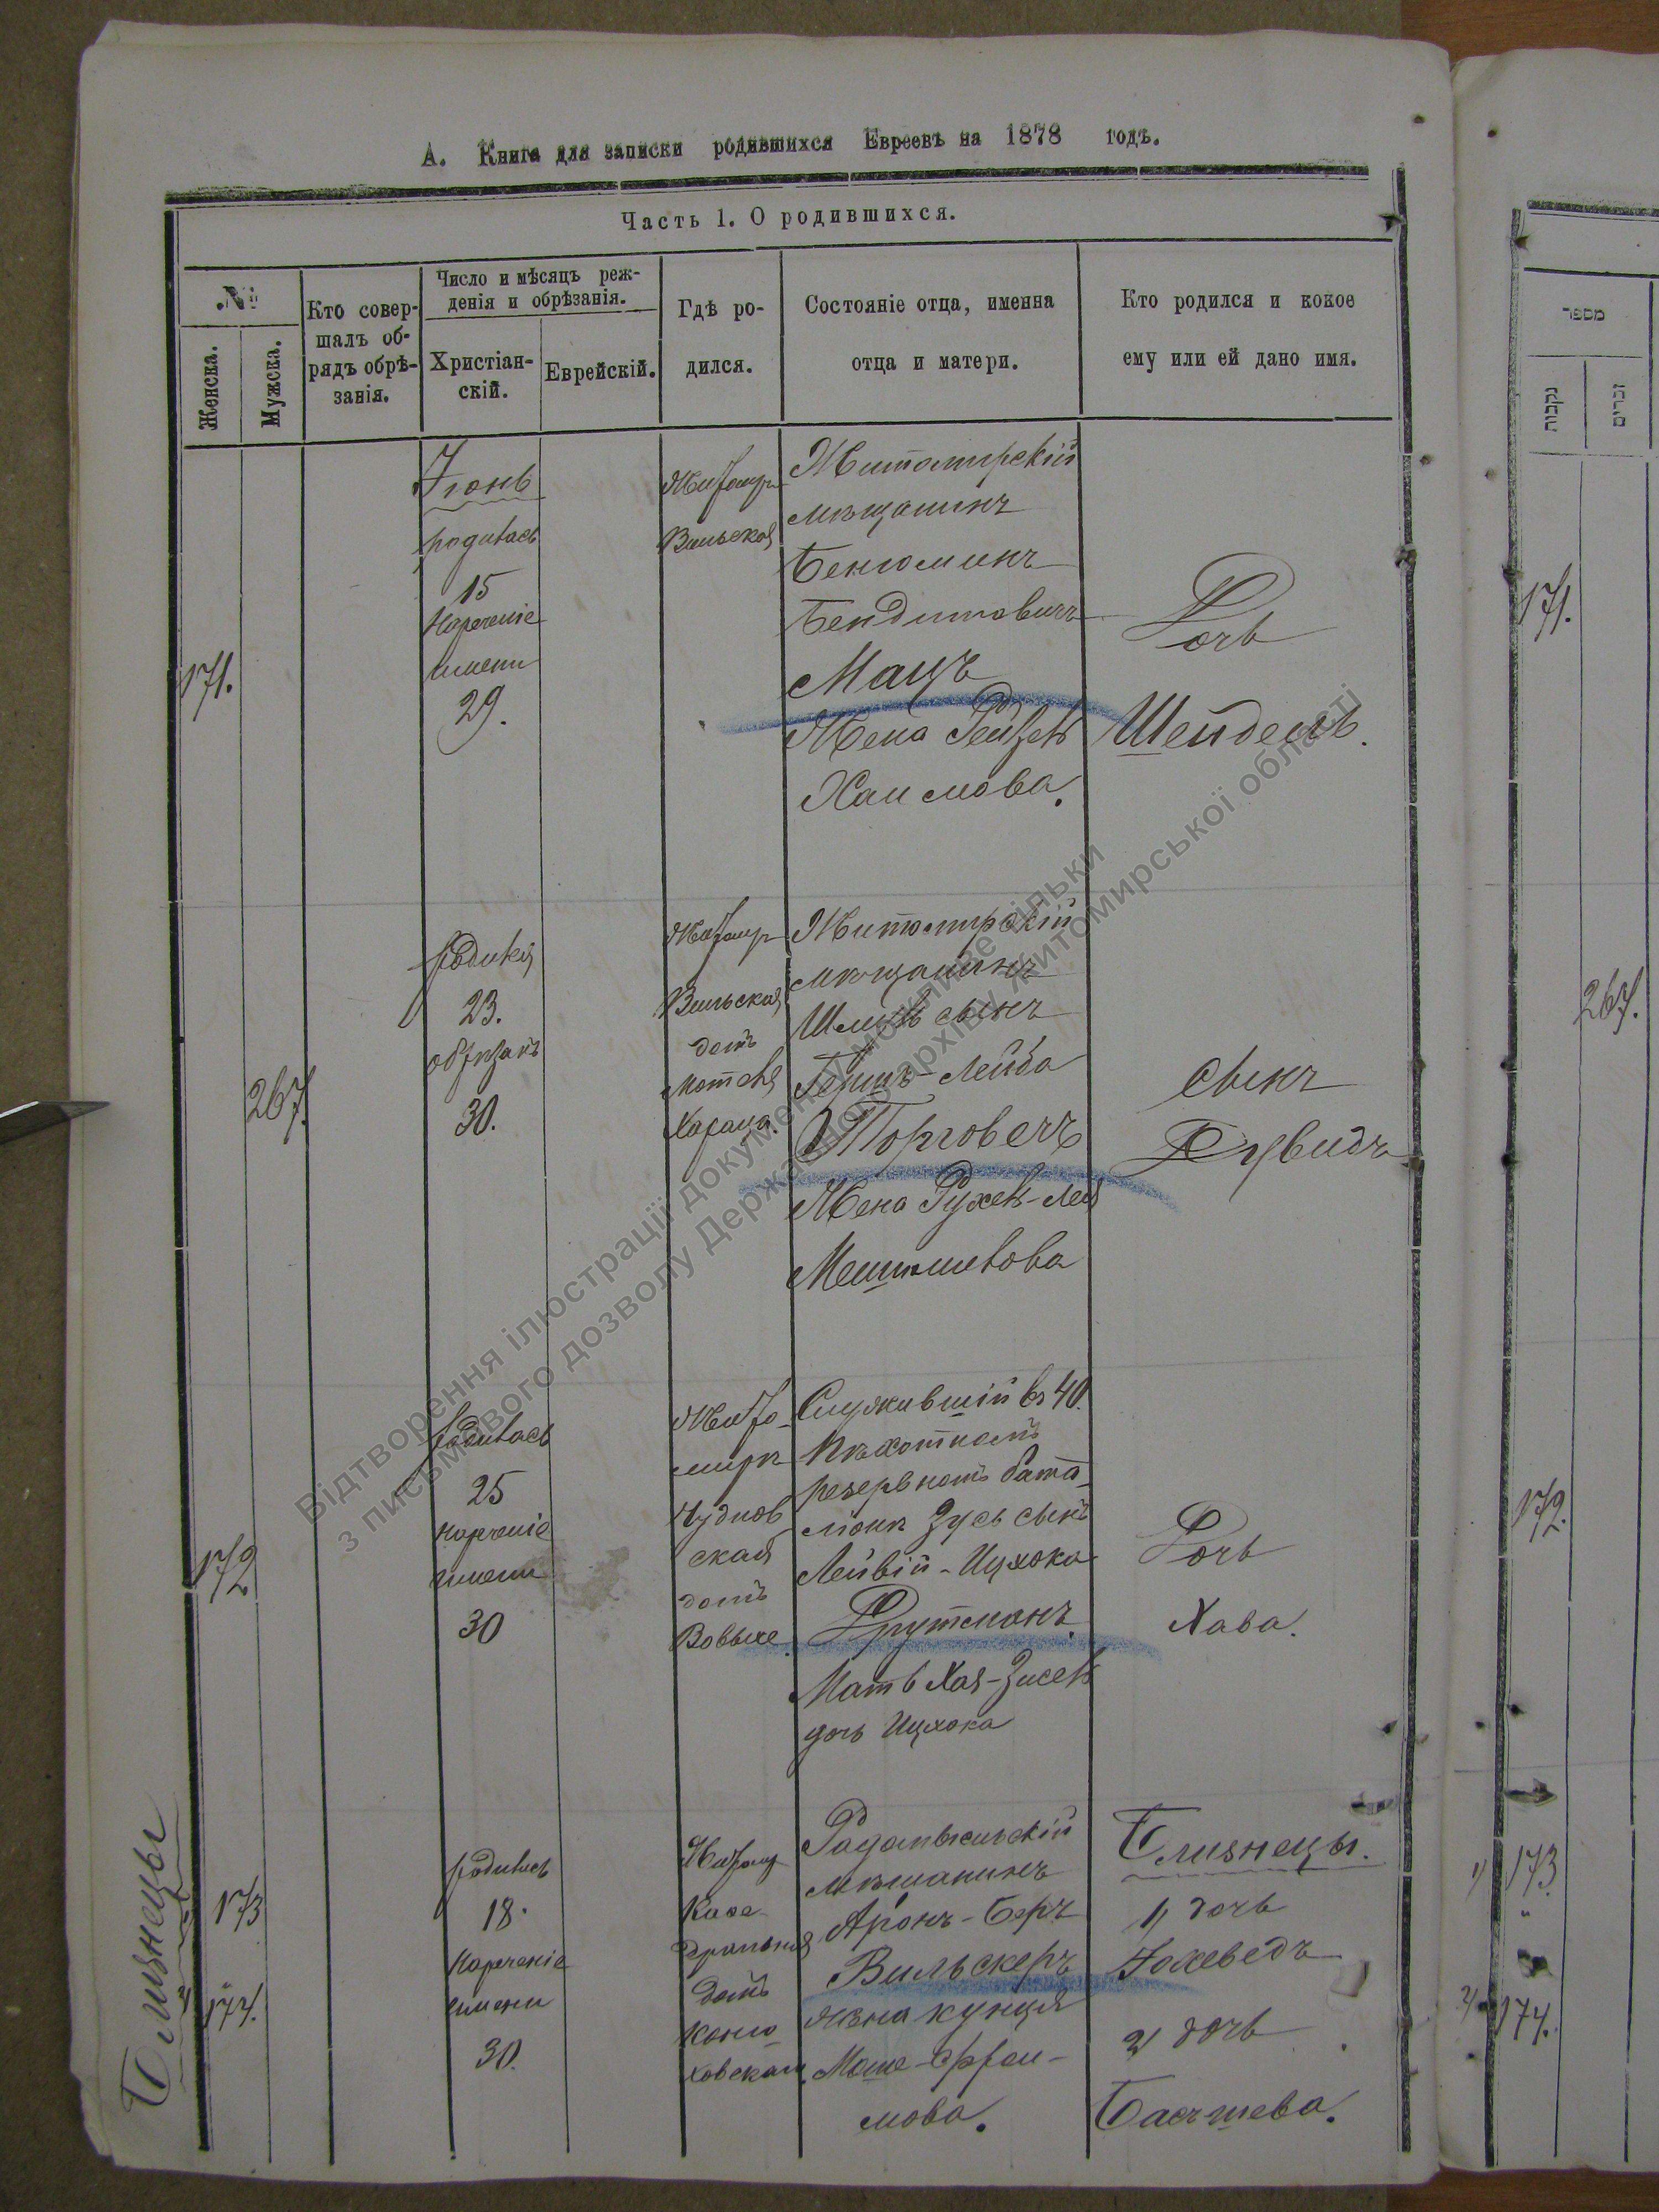 А. Книга для записки родившихся Евреевъ на 1878 годъ.
Часть 1. О родившихся.
№
Женска.
Мужска.
Кто совер-
шалъ об-
рядъ обрѣ-
занія.
Число и мѣсяцъ реж-
денія и обрѣзанія.
Христіан-
скій.
Еврейскій.
Гдѣ ро-
дился.
Состояніе отца, именна
отца и матери.
Кто родился и кокое
ему или ей дано имя.
171.
Іюнь
родилась
15
Нареченіе
имени
29.
Житомир
Вильская
Житомирскій
мѣщанинъ
Бенюминъ
Бендитовичъ
Мацъ
Жена Рейзель
Хаимова.
Дочь
Шейдель.
267.
родился
23.
обрѣзанъ
30.
Житомир
Вильская
домъ
Мотеля
Житомирскій
мѣщанинъ
сынъ
Гершъ-Лейба
Торговецъ
Жена Рухель-Лея
сынъ
172
родилась
25
нареченіе
имени
30
Жито-
миръ
Чуднов
ская
домъ
Служившій въ 40.
Пѣхотномъ
резервномъ бата-
ліонъ Зусь сынъ
Лейвій-Ицхока
Фрутманъ.
Мать Хая-Зисель
дочь Ицхока
Дочь
Хава.
Близнецы
173
174.
родились
18.
Нареченіе
имени
30.
Житомир
Каѳе-
дральная
домъ
Коню-
ховскаго.
Радомысльскій
мѣщанинъ
Аронъ-Беръ
Вильскеръ
жена Кунця
Моше-Эфрои-
мова.
Близнецы.
1) дочь
Іохеведъ
2) дочь
Басшева.
מספר
נקבות
זכרים
171.
267.
172.
1) 173
2) 174.
Відтворення ілюстрації документу можливе тільки
з письмового дозволу Державного архіву Житомирської області